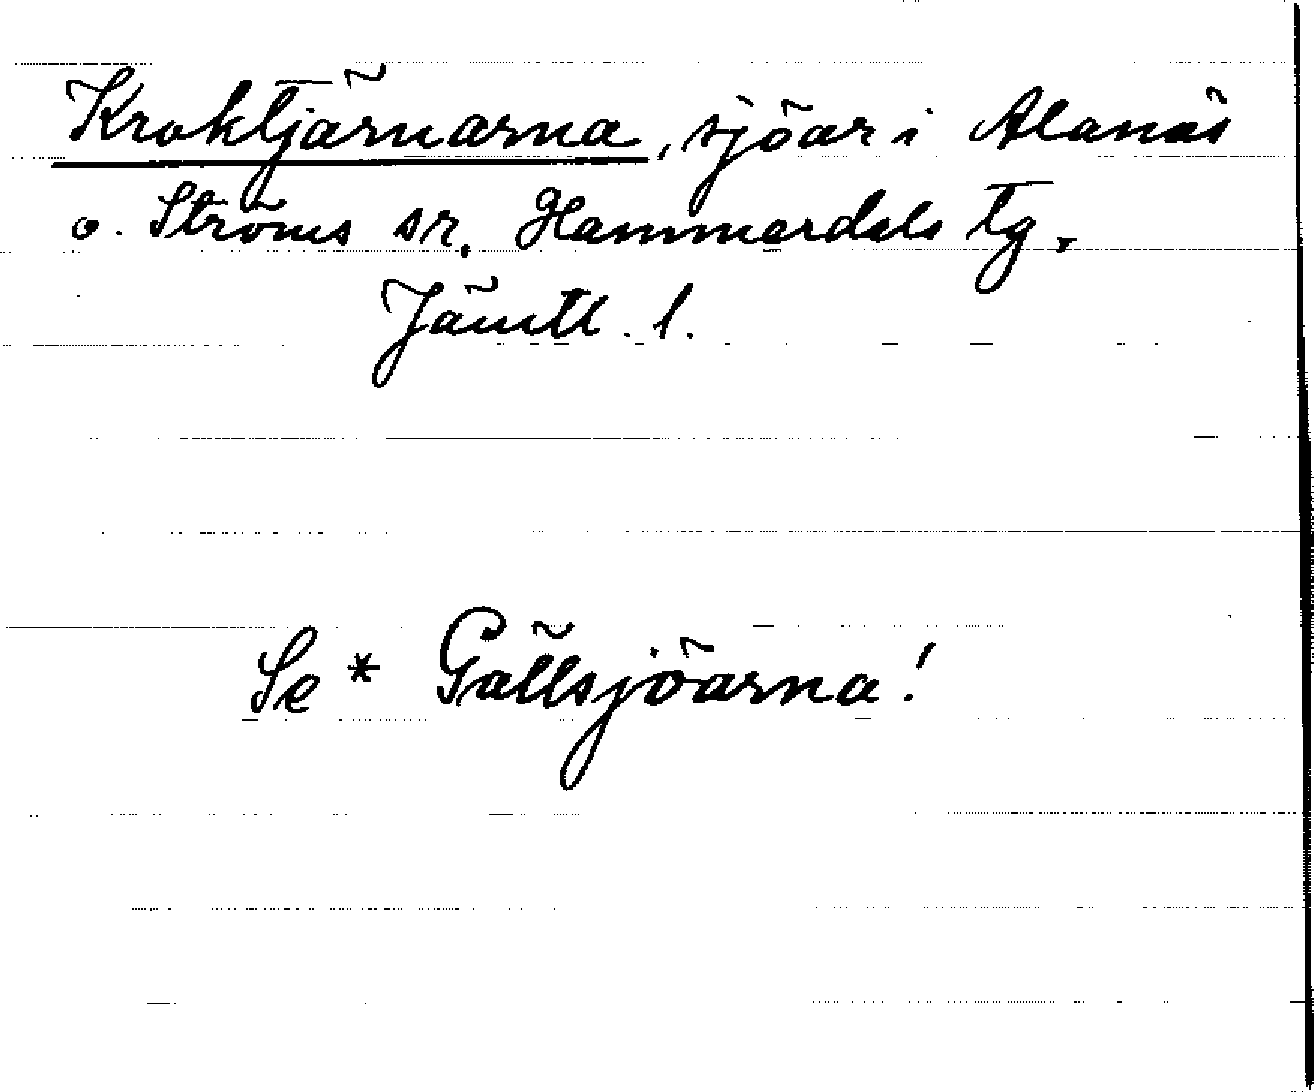 Kroktjärnarna, sjöar i Alanäs
o. Ströms sr. Hammerdals tg,
Jämtl. l.
Se * Gällsjöarna!